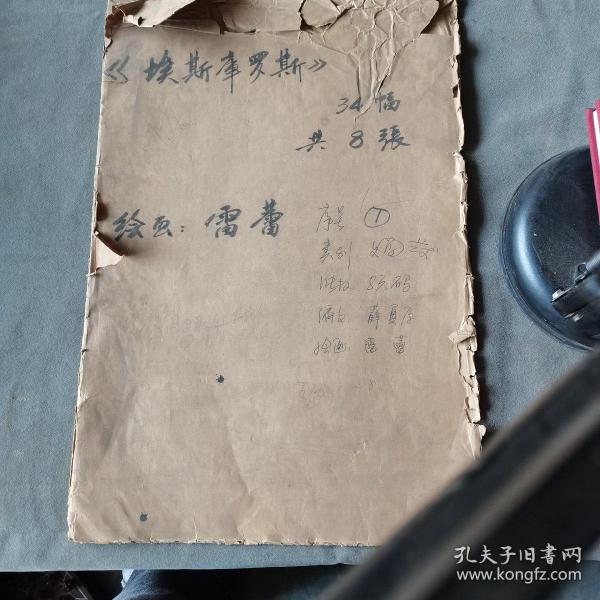 《埃斯库罗斯》
34幅
共8張
绘画：雷蕾
序号 ①
类别
统码
绘画 雷蕾
孔夫子旧书网
www.kongfz.com